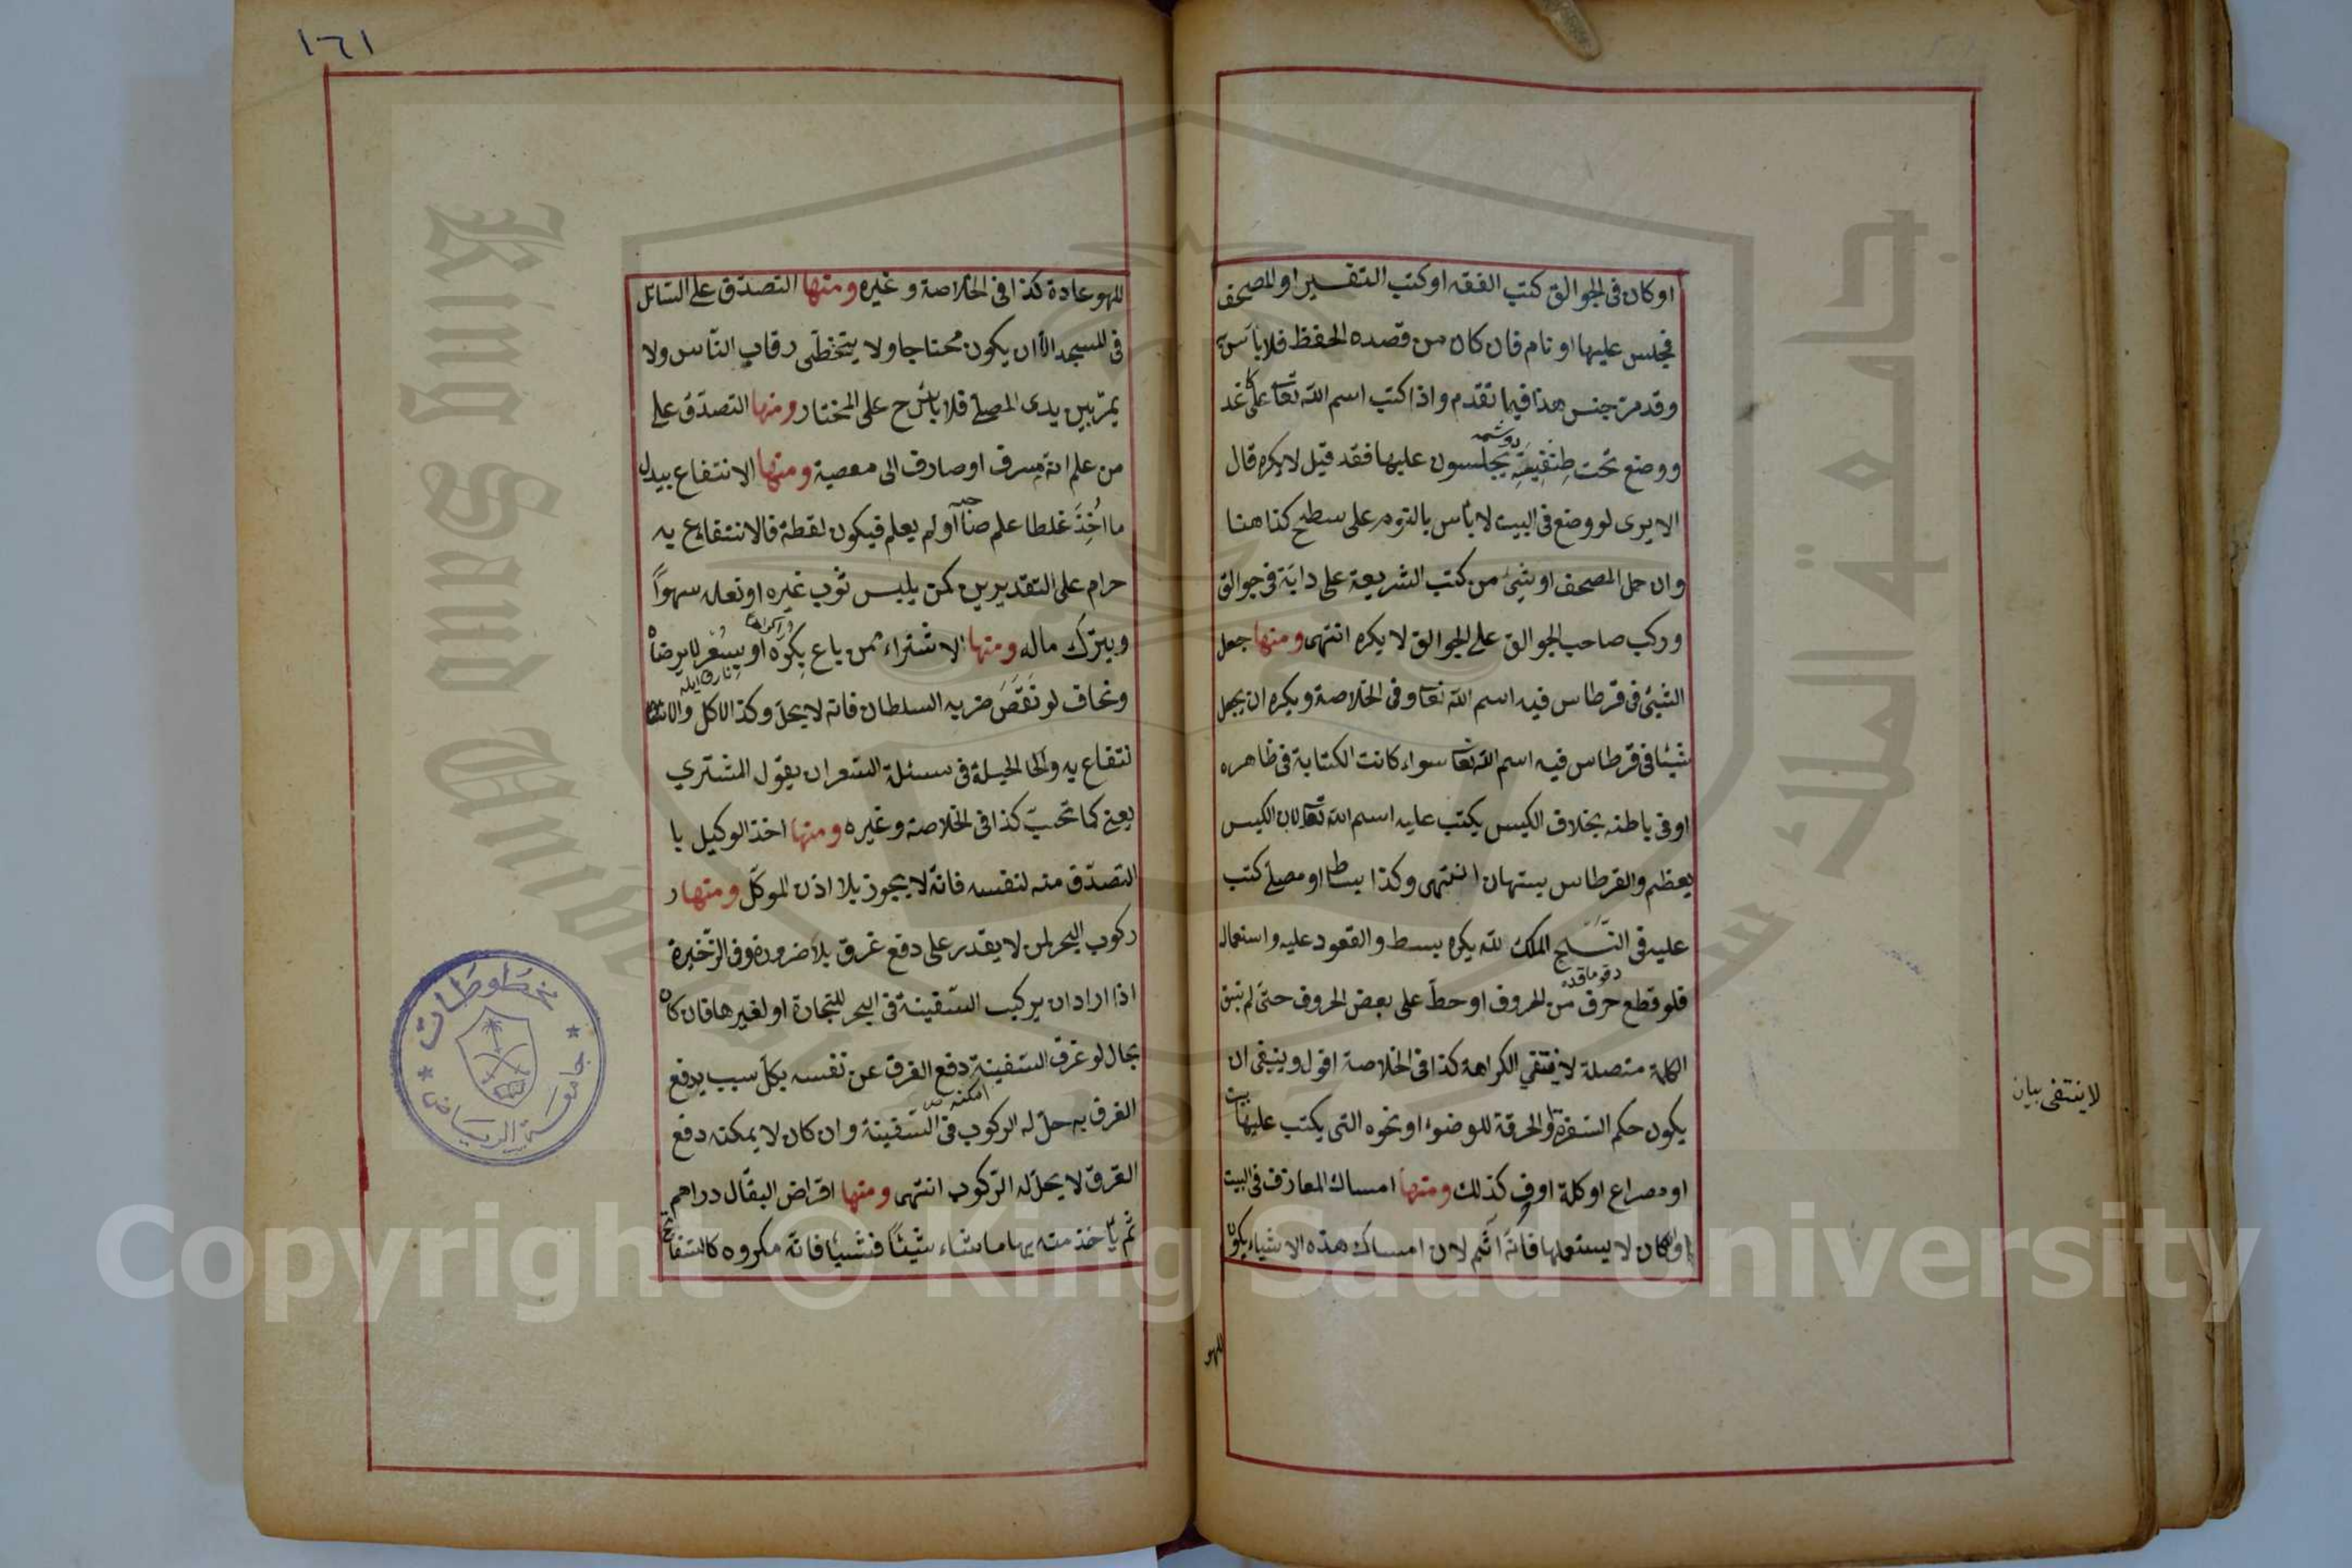 او كان فى الجوالق كتب الفقه او كتب التفسير او المصحف
فجلس عليها او نام فان كان من قصده الحفظ فلا بأس به
وقد مر جنس هذا فيما تقدم واذا كتب اسم الله تعا على كاغد
ووضع تحت طِنْفِيسَةٍ يجلسون عليها فقد قيل لا يكره قال
الا يرى لو وضع فى البيت لا بأس بالنوم على سطح كذا هنا
وان حمل المصحف او شيئ من كتب الشريعة على دابّة فى جوالق
وركب صاحب الجوالق على الجوالق لا يكره انتهى ومنها جعل
الشيئ فى قرطاس فيه اسم الله تعا وفى الخلاصة ويكره ان يجعل
شيئا فى قرطاس فيه اسم الله تعا سواء كانت الكتابة فى ظاهره
او فى باطنه بخلاف الكيس يكتب عليه اسم الله تعا لان الكيس
يعظم والقرطاس يستهان انتهى وكذا بساط او مصلى كتب
عليه فى النَّسْج الملك لله يكره بسط والقعود عليه واستعماله
فلو قطع حرف من الحروف او حطّ على بعض الحروف حتى لم تبق
الكلمة متصلة لا ينتفي الكراهة كذا فى الخلاصة اقول وينبغى ان
يكون حكم السفرة والخرقة للوضوء او نحوه التى يكتب عليها بيت
او مصراع او كلمة او كذلك ومنها امساك المعازف فى البيت
وان كان لا يستعملها فانّه آثم لان امساك هذه الاشياء يكون
لا ينتفى بيان
للهو
١٦١
للهو عادة كذا فى الخلاصة وغيره ومنها التصدّق على السّائل
فى المسجد الّا ان يكون محتاجا ولا يتخطّى رقاب النّاس ولا
يمرّ بين يدى المصلى فلا بأس ح على المختار ومنها التصدّق على
من علم انّه مسرف او صارف الى معصية ومنها الانتفاع ببدل
ما اُخِذَ غلطا علم صاحبه او لم يعلم فيكون لقطة فالانتفاع به
حرام على التقديرين كمن يلبس ثوب غيره او نعله سهواً
ويترك ماله ومنها الاشتراء ممن باع بِكُرْهٍ او بِسِعْرٍ لا يرضاه
وتخاف لو نَقَصَ ضربه السلطان فانّه لا يحلّ وكذا الاكل والا
نتفاع به والحيلة فى مسئلة السّعر ان يقول المشتري
بعنى كما تحبّ كذا فى الخلاصة وغيره ومنها اخذ الوكيل با
التصدّق منه لنفسه فانّه لا يجوز بلا اذن الموكّل ومنها ر
ركوب البحر لمن لا يقدر على دفع غرق بلا ضرورة وفى الذّخيرة
اذا اراد ان يركب السّفينة فى البحر للتجارة او لغيرها فان كان
بحال لو غرق السّفينة دفع الغرق عن نفسه بكلّ سبب يدفع
الغرق به حلّ له الركوب فى السّفينة وان كان لا يمكنه دفع
الغرق لا يحلّ له الرّكوب انتهى ومنها اقراض البقّال دراهم
ثم يأخذ منه بها ما شاء شيئاً فشيئا فانّه مكروه كالسّفاتج
مخطوطات
جامعة الرياض
جامعة الملك سعود
King Saud University
Copyright © King Saud University